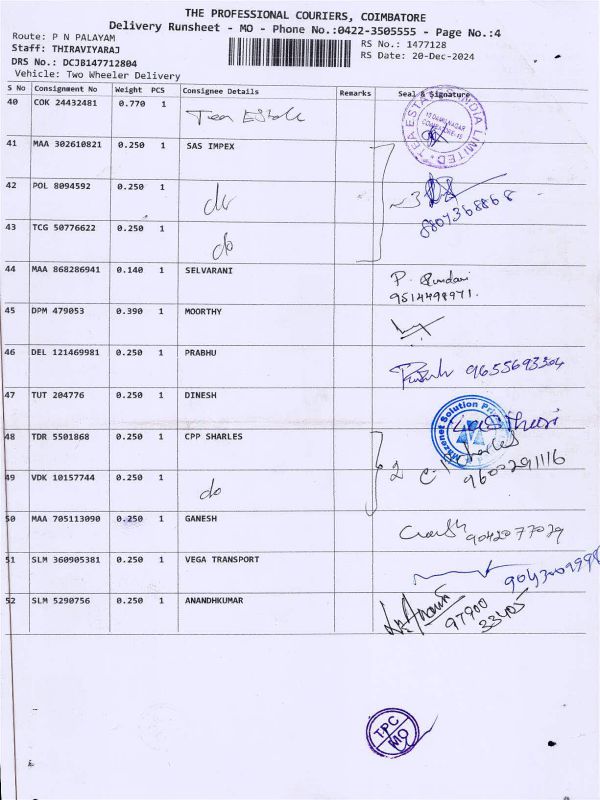 THE PROFESSIONAL COURIERS, COIMBATORE
Delivery Runsheet - MO - Phone No.:0422-3505555 - Page No.:4
Route: P N PALAYAM
Staff: THIRAVIYARAJ
DRS No.: DCJ8147712804
Vehicle: Two Wheeler Delivery
RS No.: 1477128
RS Date: 20-Dec-2024
S No Consignment No Weight PCS Consignee Details Remarks Seal & Signature
40 COK 24432481 0.770 1 Tea Estate
TEA ESTATE INDIA LIMITED
COIMBATORE-15
41 MAA 302610821 0.250 1 SAS IMPEX
42 POL 8094592 0.250 1 do ~3
8807368868
43 TCG 50776622 0.250 1 do
44 MAA 868286941 0.140 1 SELVARANI P. Sundari
9514498971.
45 DPM 479053 0.390 1 MOORTHY
46 DEL 121469981 0.250 1 PRABHU 9655693304
47 TUT 204776 0.250 1 DINESH
48 TDR 5501868 0.250 1 CPP SHARLES 2 C.P Sharles
9600291116
49 VDK 10157744 0.250 1 do
50 MAA 705113090 0.250 1 GANESH 9042077079
51 SLM 360905381 0.250 1 VEGA TRANSPORT
52 SLM 5290756 0.250 1 ANANDHKUMAR
97900
33405
TPC
MO